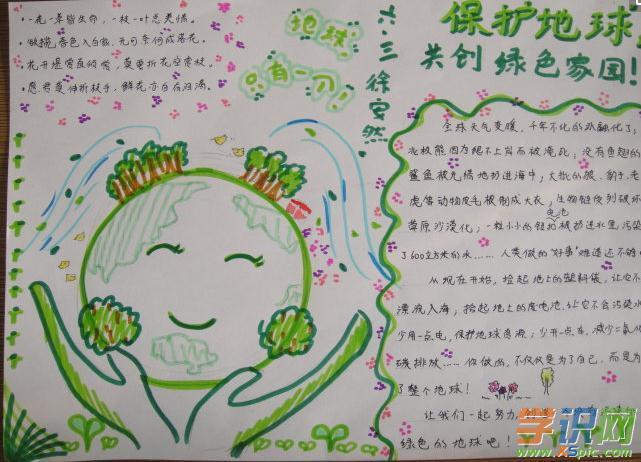 ·一花一草皆生命,一枝一叶总关情。
·花开堪
地球
只有一个!
六.三 徐安然
保护地球
共创绿色家园!
全球天气变暖,千年不化的冰融化了;
北极熊因为绝不上岸而被淹死;没有鱼翅的
鲨鱼被无情地扔进海中;大批的狼、豹子、老
虎等动物皮毛被制成大衣;生物链受到破坏
草原沙漠化;一粒小小的电池被扔进水里,污染
了600立方米的水……人类做的"好事"难道还不够
从现在开始,捡起地上的塑料袋,让它不
漂流入海;捡起地上的废电池,让它不会污染水
少用一点电,保护地球资源;少开一点车,减少二氧化
碳排放……你做的,不仅仅是为了自己,而是为
了整个地球!
让我们一起努力,创造
绿色的地球吧!
学识网
www.XSpic.com